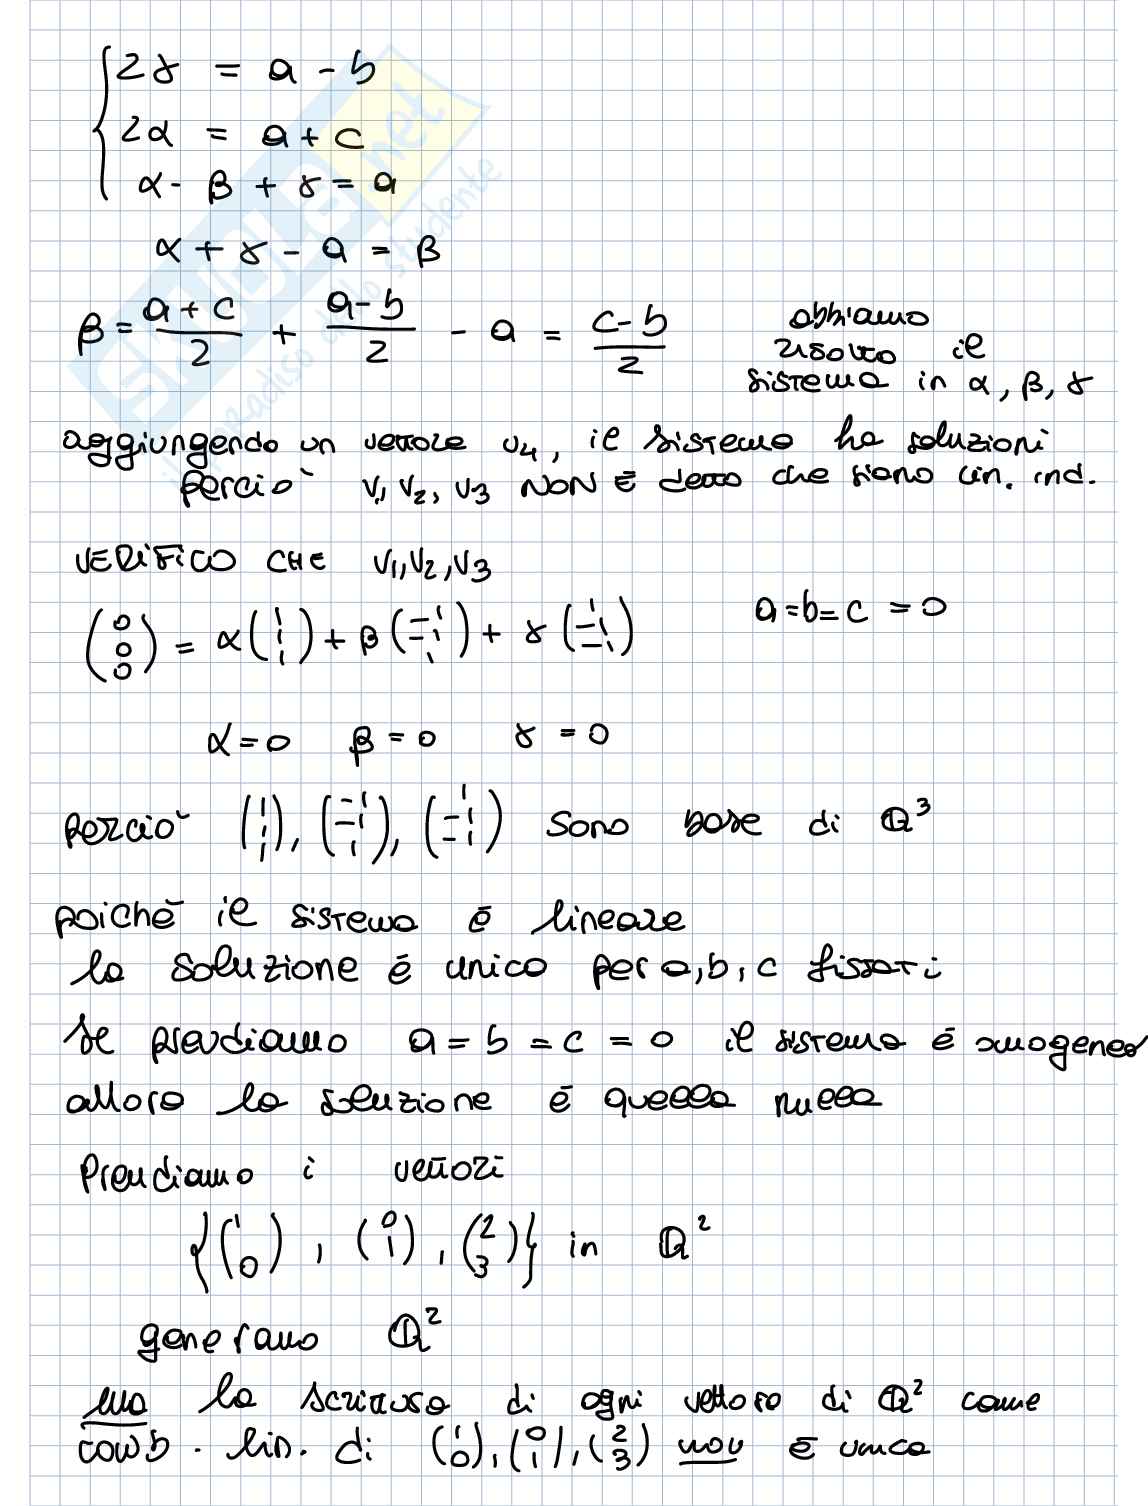 2γ = a - b
2α = a + c
α - β + γ = a
α + γ - a = β
β = (a + c)/2 + (a - b)/2 - a = (c - b)/2
abbiamo
risolto il
sistema in α, β, γ
aggiungendo un vettore v4, il sistema ha soluzioni
perciò v1, v2, v3 NON È detto che siano lin. ind.
VERIFICO CHE v1, v2, v3
(0 0 0) = α (1 1 1) + β (-1 -1 1) + γ (1 -1 -1) a = b = c = 0
α = 0 β = 0 γ = 0
perciò (1 1 1), (-1 -1 1), (1 -1 -1) sono base di Q³
poichè il sistema è lineare
la soluzione è unica per a, b, c fissati
se prendiamo a = b = c = 0 il sistema è omogeneo
allora la soluzione è quella nulla
Prendiamo i vettori
{(1 0), (0 1), (2 3)} in Q²
generano Q²
ma la scrittura di ogni vettore di Q² come
comb. lin. di (1 0), (0 1), (2 3) non è unica
SKUOLA.net
il paradiso dello studente